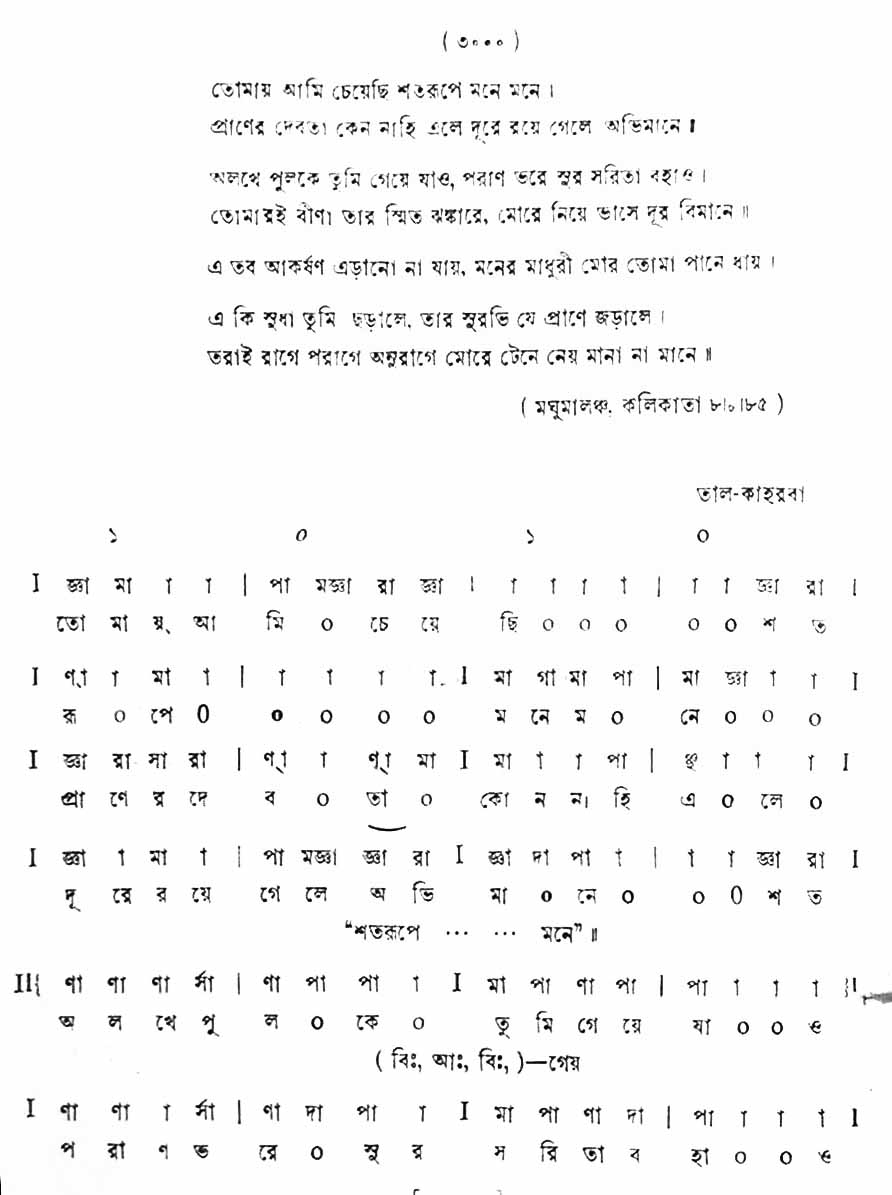 ( ৩০০০ )
তোমায় আমি চেয়েছি শতরূপে মনে মনে ।
প্রাণের দেবতা কেন নাহি এলে দূরে রয়ে গেলে অভিমানে ॥
অলখে পুলকে তুমি গেয়ে যাও, পরাণ ভরে সুর সরিতা বহাও ।
তোমারই বীণা তার স্মিত ঝঙ্কারে, মোরে নিয়ে ভাসে দূর বিমানে ॥
এ তব আকর্ষণ এড়ানো না যায়, মনের মাধুরী মোর তোমা পানে ধায় ।
এ কি সুধা তুমি ছড়ালে, তার সুরভি যে প্রাণে জড়ালে ।
তরাই রাগে পরাগে অনুরাগে মোরে টেনে নেয় মানা না মানে ॥
( মধুমালঞ্চ, কলিকাতা
তাল-কাহরবা
১ ০ ১ ০
I জ্ঞা মা া া | পা মজ্ঞা রা জ্ঞা | া া া া | া া জ্ঞা রা |
তো মা য়্ আ মি ০ চে য়ে ছি ০ ০ ০ ০ ০ শ ত
I ণ্া া মা া | া া া া I মা গা মা পা | মা জ্ঞা া া I
রূ ০ পে ০ ০ ০ ০ ০ ম নে ম ০ নে ০ ০ ০
I জ্ঞা রা সা রা | ণ্া া ণ্া মা I মা া া পা | া া া I
প্রা ণে র দে ব ০ তা ০ কো ন না হি এ ০ লে ০
I জ্ঞা া মা া | পা মজ্ঞা জ্ঞা রা I জ্ঞা দা পা া | া া জ্ঞা রা I
দূ রে র য়ে গে লে অ ভি মা ০ নে ০ ০ ০ শ ত
“শতরূপে ... ... মনে” ॥
II{ ণা ণা ণা র্সা | ণা পা পা া I মা পা ণা পা | পা া া া }I
অ ল খে পু ল ০ কে ০ তু মি গে য়ে যা ০ ০ ও
( বিঃ, আঃ, বিঃ, )—গেয়
I ণা ণা া র্সা | ণা দা পা া I মা পা ণা দা | পা া া া I
প রা ণ ভ রে ০ সু র স রি তা ব হা ০ ০ ও